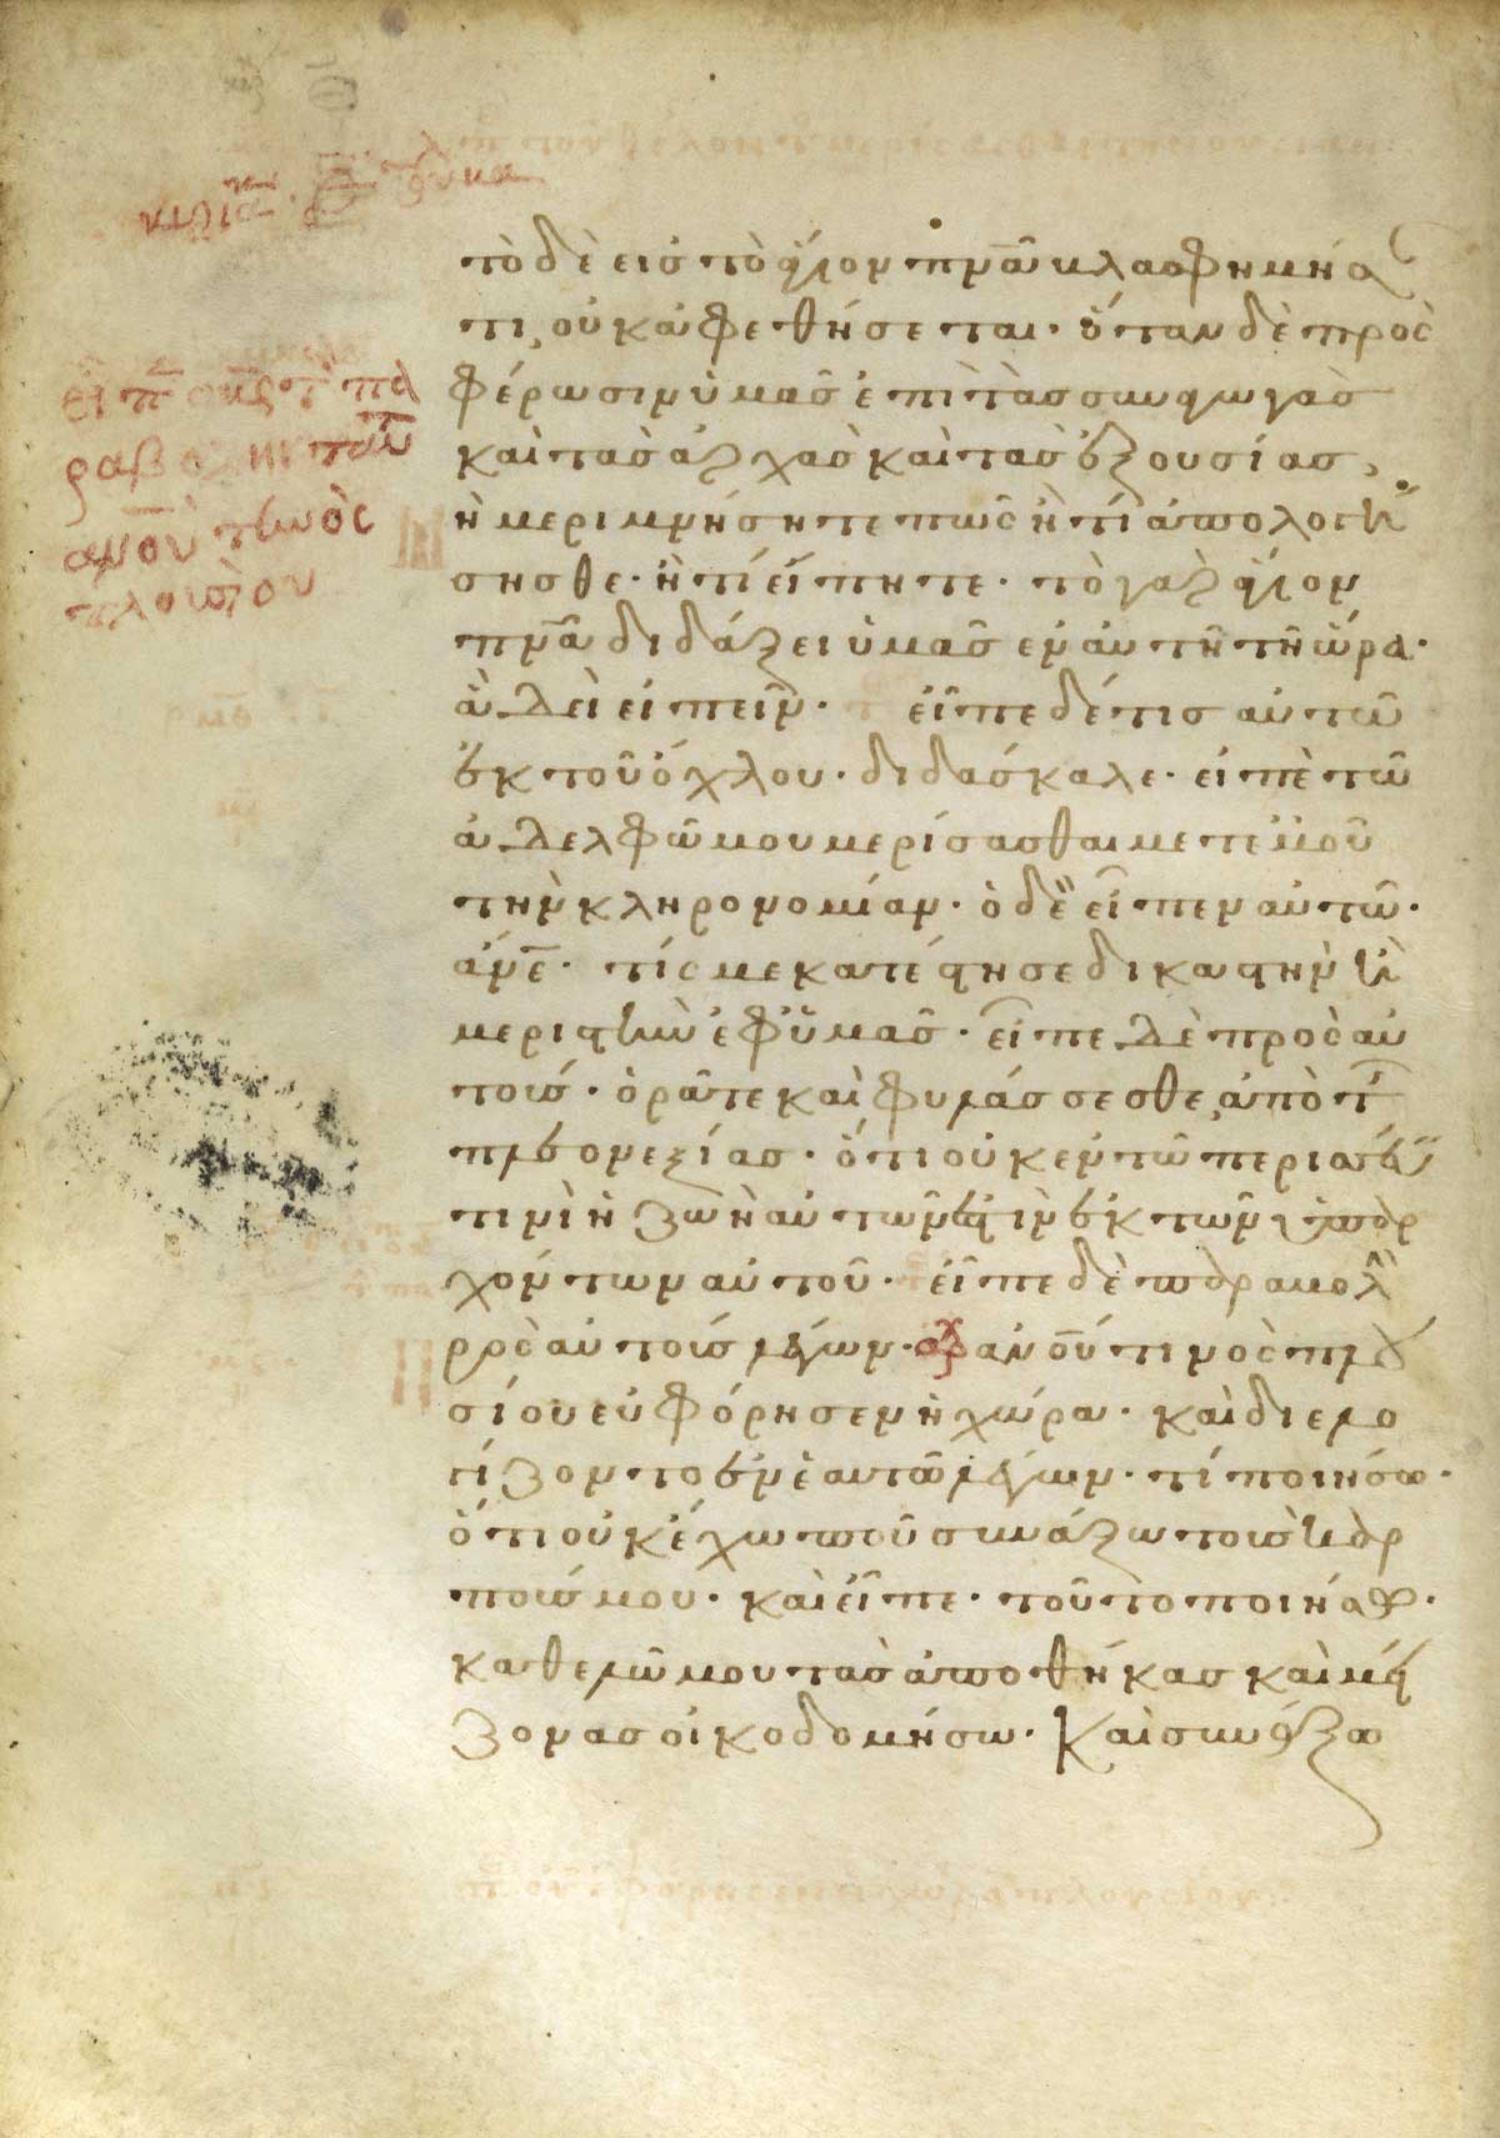 κυριακῆ
εἶπεν ὁ κς τ̀ πα
ραβολὴν ταύτην
ανου τινὸς
πλουσίου
τὸ δὲ εἰσ τὸ ἅγιον πνᾶ βλασφημήσαν
τι, οὐκ ἀφεθήσεται· ὅταν δὲ προσ
φέρωσιν ὑμᾶσ ἐπὶ τὰσ συναγωγὰσ
καὶ τὰσ ἀρχὰσ καὶ τὰσ ἐξουσίασ,
μὴ μεριμνήσητε πῶς ἢ τί ἀπολογή
σησθε· ἢ τί εἴπητε· τὸ γὰρ ἅγιον
πνᾶ διδάξει ὑμᾶσ ἐν αὐτῆ τῆ ὥρα·
ἃ δεὶ εἰπεῖν· εἶπε δέ τισ αὐτῶ
ἐκ τοῦ ὄχλου· διδάσκαλε· εἰπὲ τῶ
ἀδελφῶ μου μερίσασθαι μετ ἐμοῦ
τὴν κληρονομίαν· ὁ δὲ εἶπεν αὐτῶ·
ἄνε· τίς με κατέστησε δικαστὴν ἢ
μεριστὴν ἐφ ὑμᾶσ· εἶπε δὲ πρὸς αὐ
τούσ· ὁρᾶτε καὶ φυλάσσεσθε, ἀπὸ τῆσ
πλεονεξίασ· ὅτι οὐκ ἐν τῶ περισσεύειν
τινὶ ἡ ζωὴ αὐτῶν ἐστὶν ἐκ τῶν ὑπαρ
χόντων αὐτοῦ· εἶπε δὲ παραβολὴν
πρὸς αὐτούσ λέγων· ανου τινὸς πλου
σίου εὐφόρησεν ἡ χώρα· καὶ διελο
γίζοντο ἐν ἑαυτῶ λέγων· τί ποιήσω·
ὅτι οὐκ ἔχω ποῦ συνάξω τοὺσ καρ
πούσ μου· καὶ εἶπε· τοῦτο ποιήσω·
καθελῶ μου τὰσ ἀποθήκασ καὶ μεί
ζονασ οἰκοδομήσω· Καὶ συνάξω